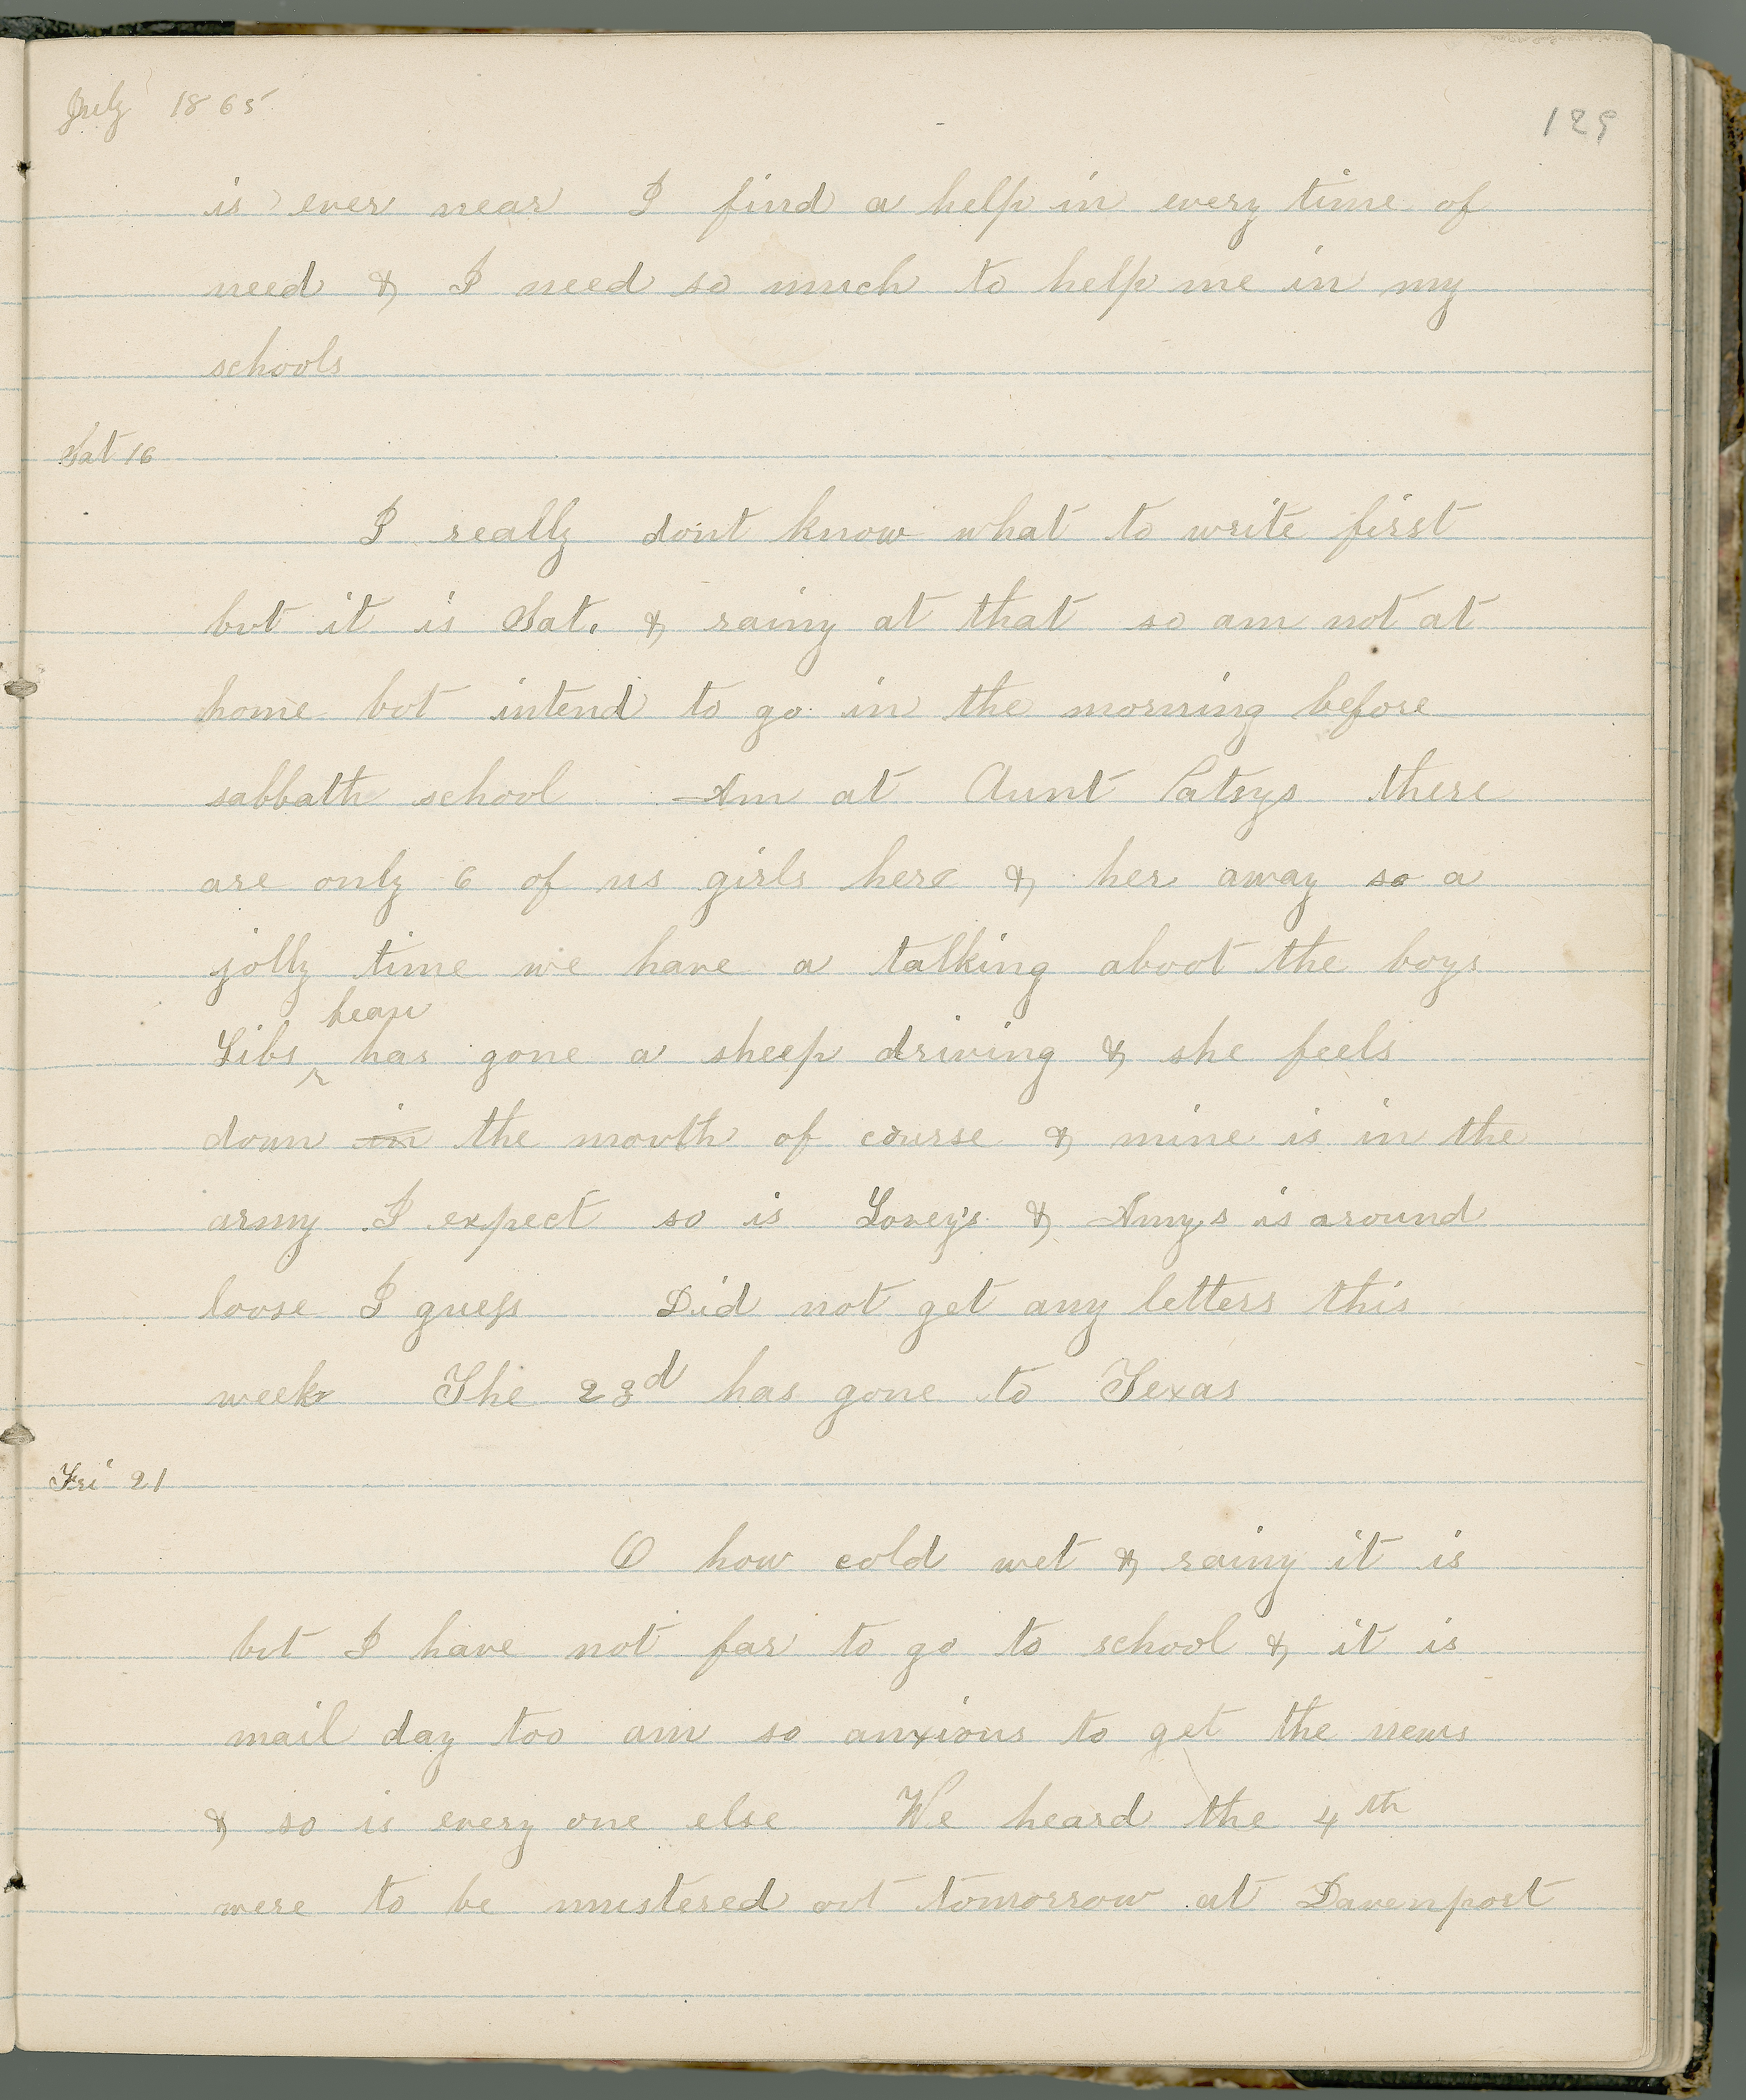 July 1865
129
is ever near I find a help in every time of
need & I need so much to help me in my
schools
Sat 16
I really dont know what to write first
but it is Sat. & rainy at that so am not at
home but intend to go in the morning before
sabbath school Am at Aunt Patsys there
are only 6 of us girls here & her away so a
jolly time we have a talking about the boys
beau
Libs ^ has gone a sheep driving & she feels
down in the mouth of course & mine is in the
army I expect so is Lovey's & Amys is around
loose I guess Did not get any letters this
week The 23d has gone to Texas
Fri 21
O how cold wet & rainy it is
but I have not far to go to school & it is
mail day too am so anxious to get the news
& so is every one else We heard the 4th
were to be mustered out tomorrow at Davenport